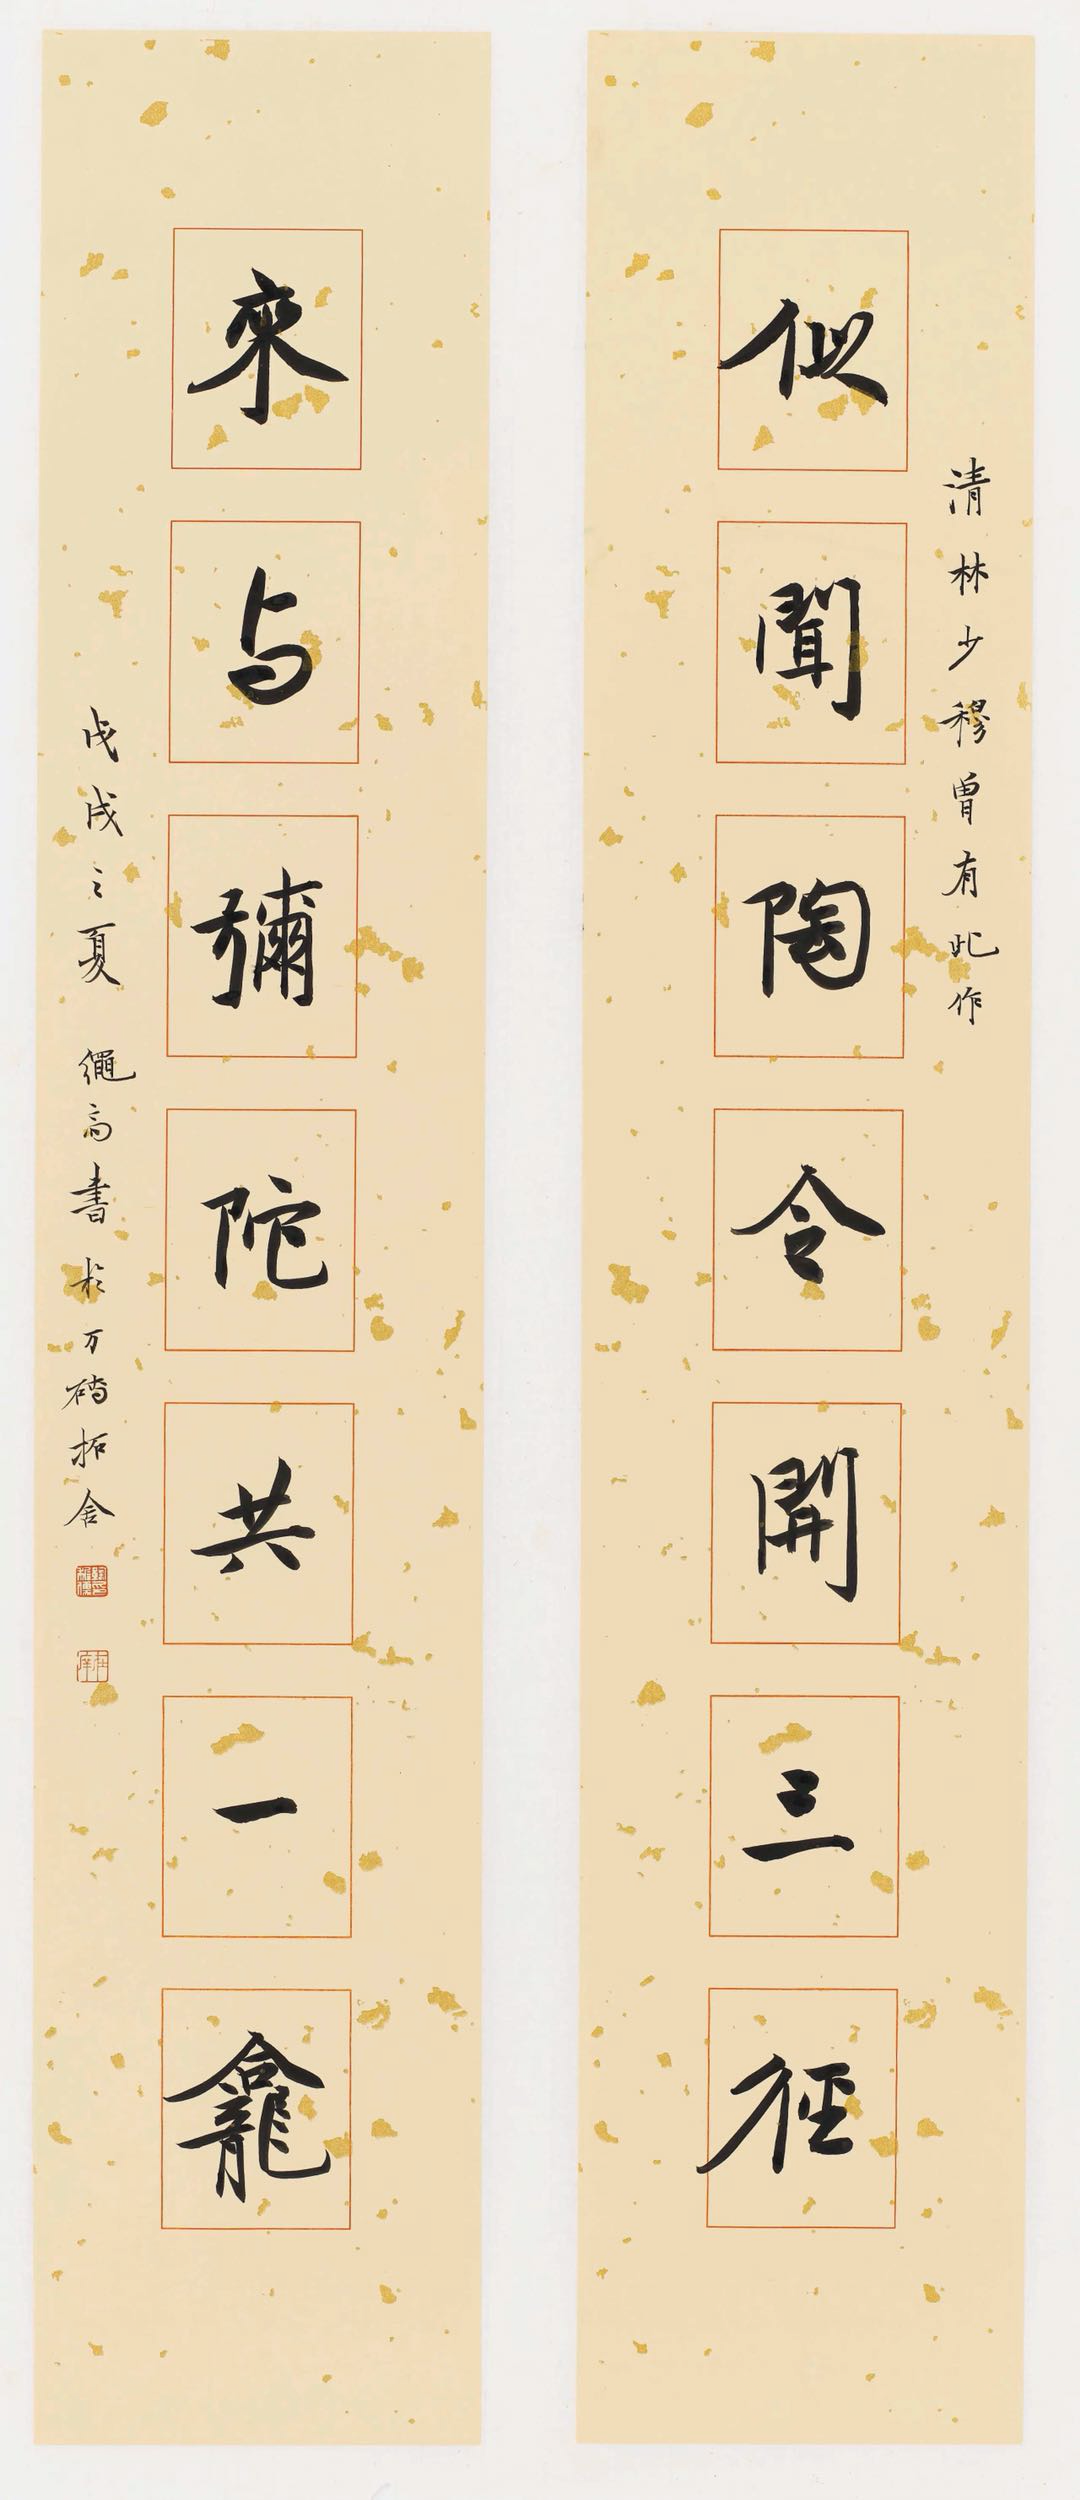 清林少穆曾有此作
似聞陶令開三徑
來与彌陀共一龕
戊戌之夏 繩高書於万磚拓舍